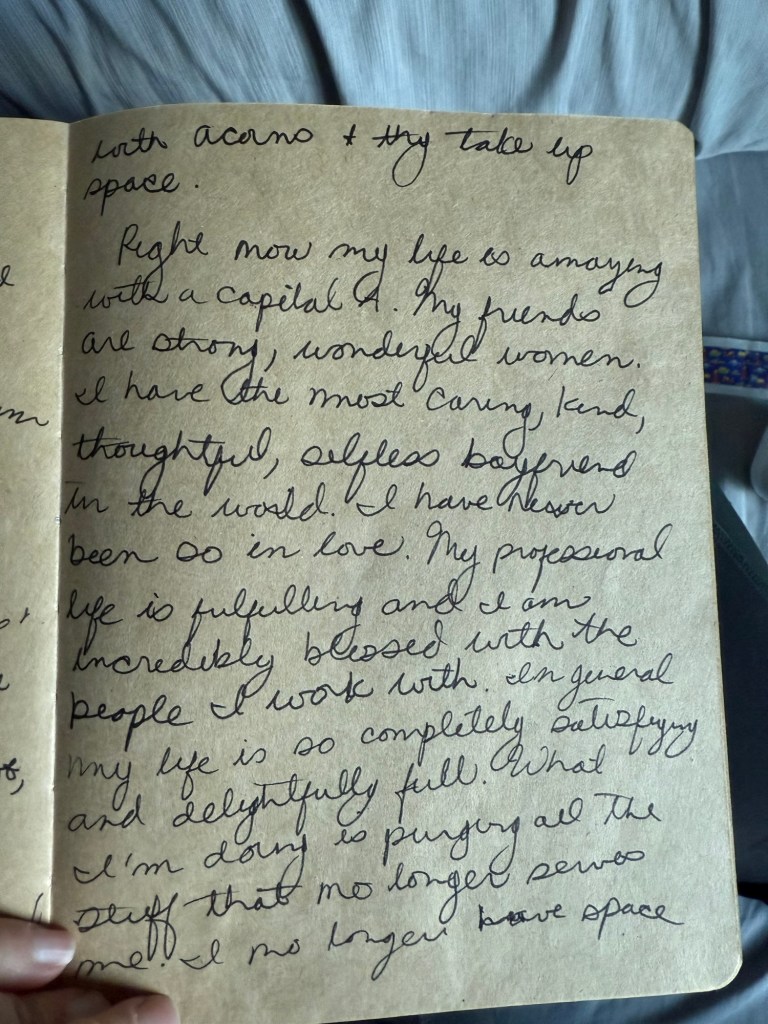 with acorns + they take up
space.
Right now my life is amazing
with a capital A. My friends
are strong, wonderful women.
I have the most caring, kind,
thoughtful, selfless boyfriend
in the world. I have never
been so in love. My professional
life is fulfilling and I am
incredibly blessed with the
people I work with. In general
my life is so completely satisfying
and delightfully full. What
I'm doing is purging all the
stuff that no longer serves
me. I no longer have space